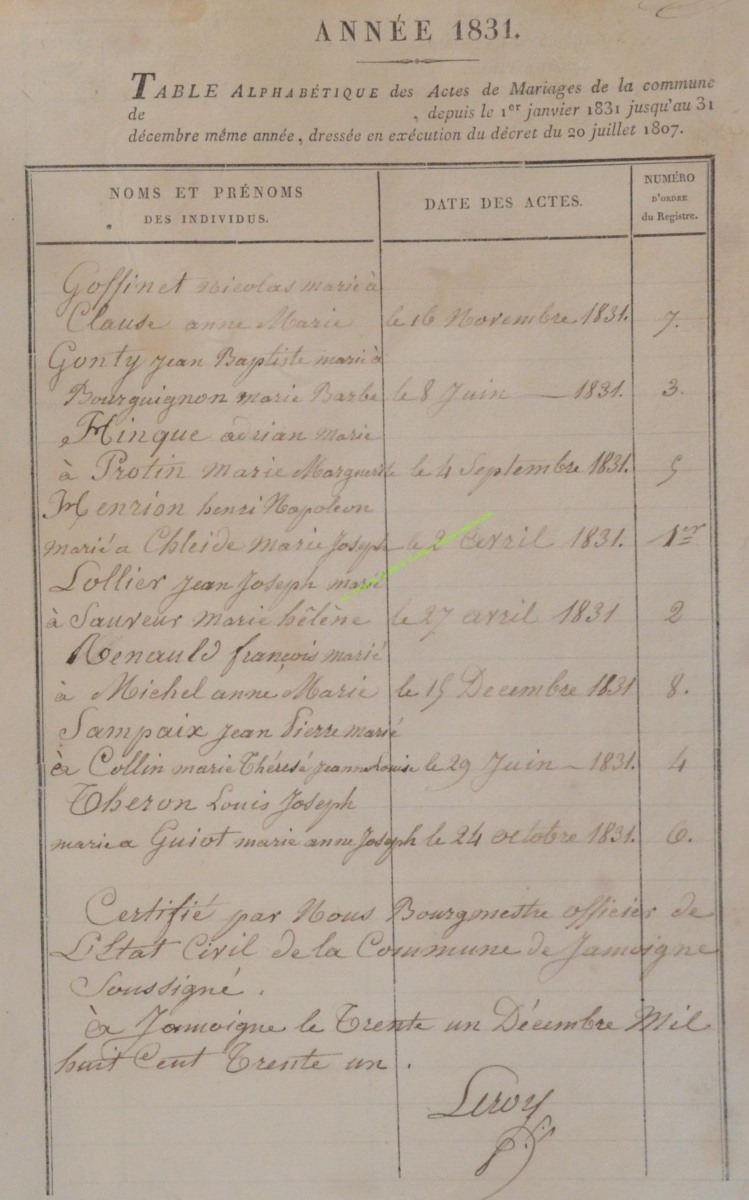 ANNÉE 1831.
TABLE ALPHABÉTIQUE des Actes de Mariages de la commune
de , depuis le 1er janvier 1831 jusqu'au 31
décembre même année, dressée en exécution du décret du 20 juillet 1807.
NOMS ET PRÉNOMS DES INDIVIDUS. DATE DES ACTES. NUMÉRO D'ORDRE du Registre.
Goffinet nicolas marié à
Clause anne Marie le 16 Novembre 1831. 7.
Gonty jean Baptiste marié à
Bourguignon marie Barbe le 8 Juin — 1831. 3.
Hinque adrian marie
à Protin marie Marguerite le 4 Septembre 1831. 5
Henrion henri Napoleon
marié a Chleide marie Joseph le 2 avril 1831. 1er
Lollier jean Joseph marié
à Sauveur marie hélène le 27 avril 1831 2
Renauld françois marié
à Michel anne Marie le 15 Decembre 1831 8.
Sampaix jean Pierre marié
à Collin marie Thérésé jeanne Louise le 29 Juin — 1831. 4
Theron Louis Joseph
marie a Guiot marie anne Joseph le 24 octobre 1831. 6.
Certifié par Nous Bourgmestre officier de
L'Etat Civil de la Commune de Jamoigne
Soussigné.
à Jamoigne le Trente un Décembre Mil
huit Cent Trente un.
Leroy